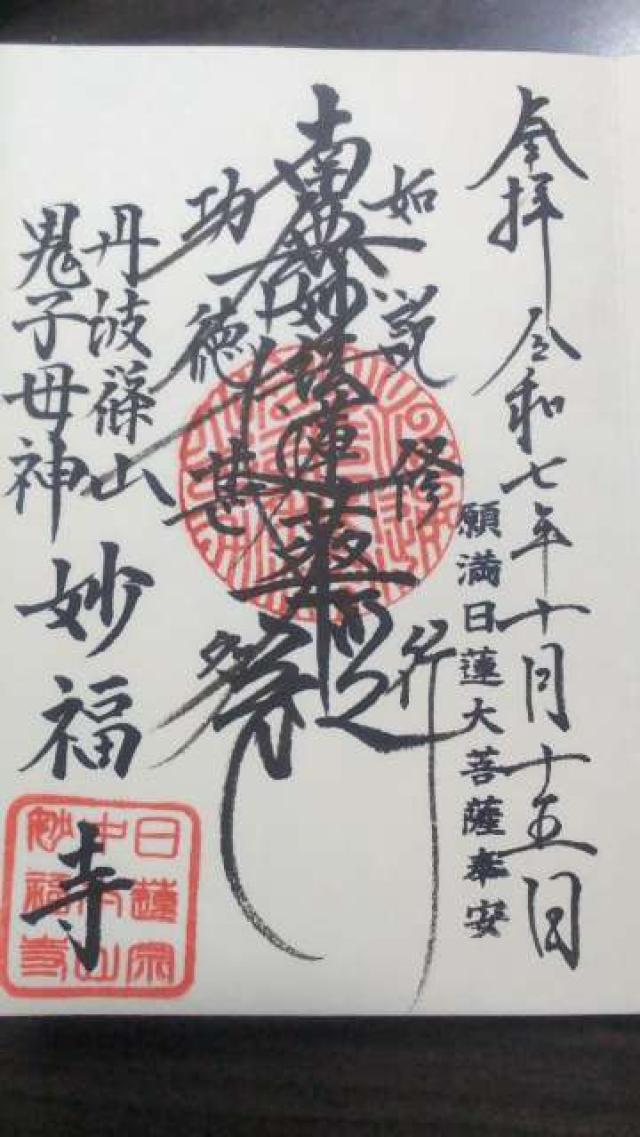 奉拝 令和七年十月十五日
願満日蓮大菩薩奉安
如説修行
南無妙法蓮華経
功徳甚多
丹波篠山
鬼子母神
妙福寺
日蓮宗
中本山
妙福寺